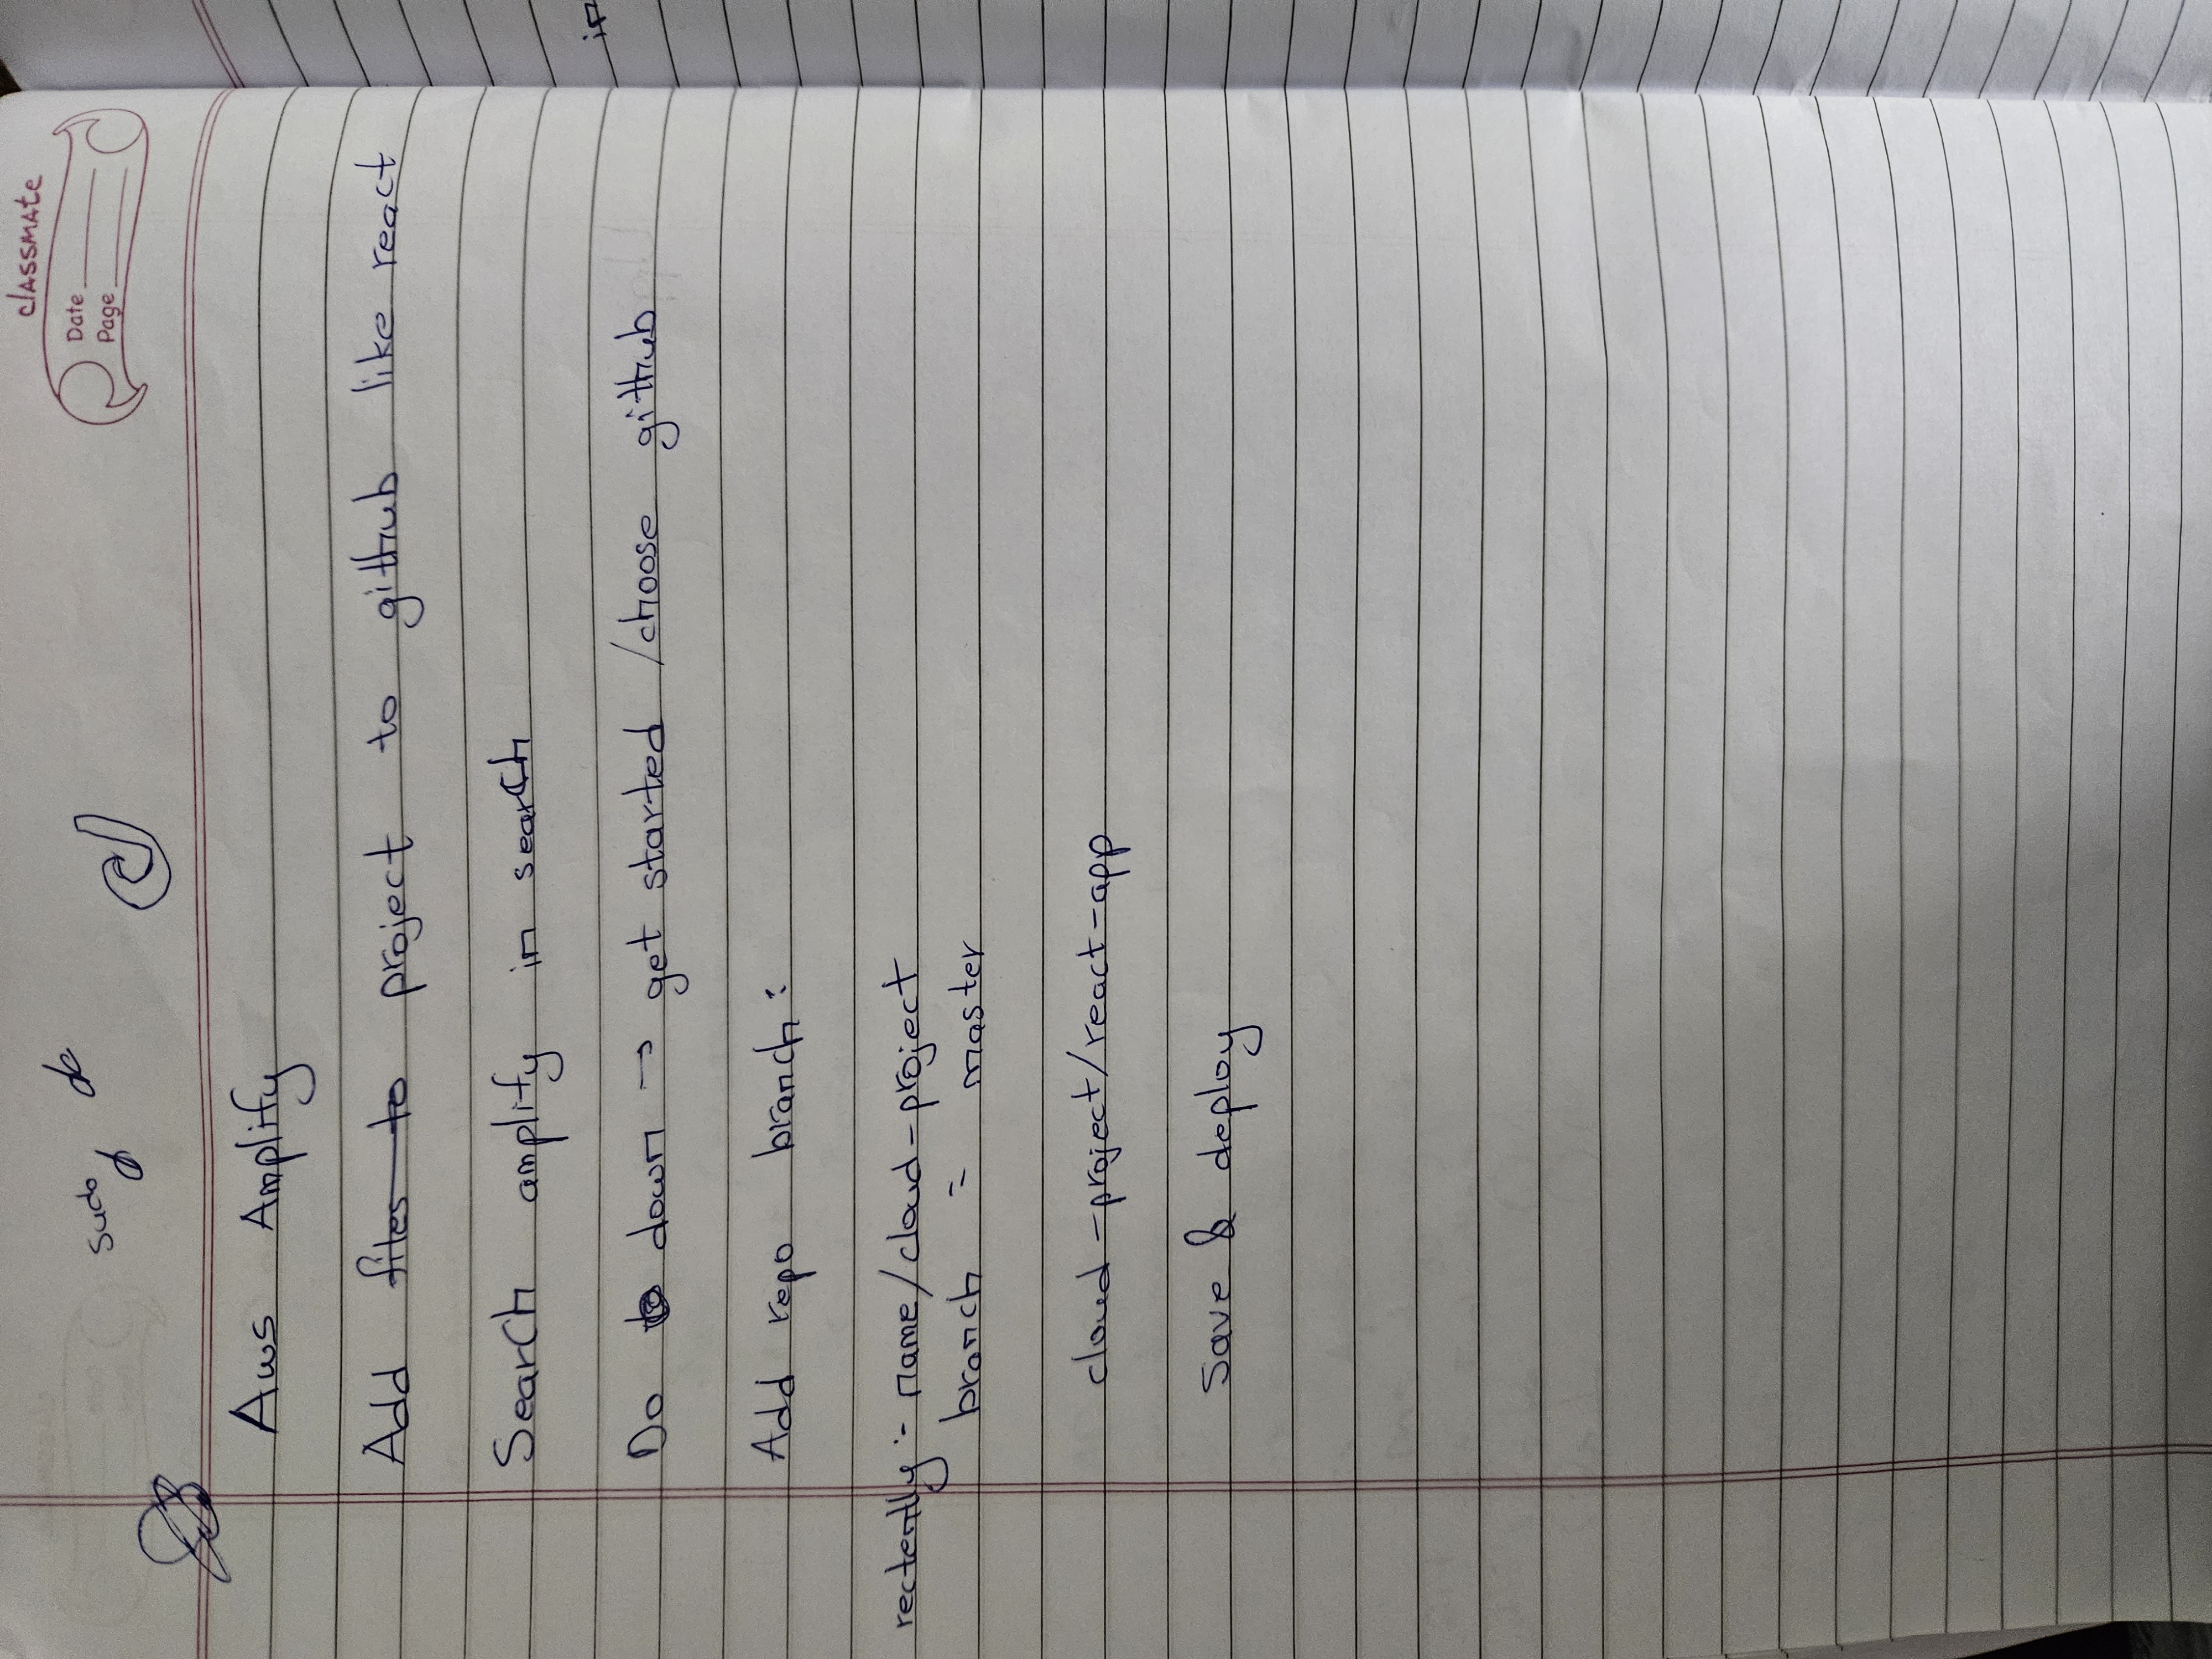 classmate
Date
Page
sudo do
Aws Amplify
Add files to project to github like react
Search amplify in search
Do down → get started /choose github
Add repo branch :
rectently :- name/cloud-project
branch = master
cloud-project/react-app
save & deploy